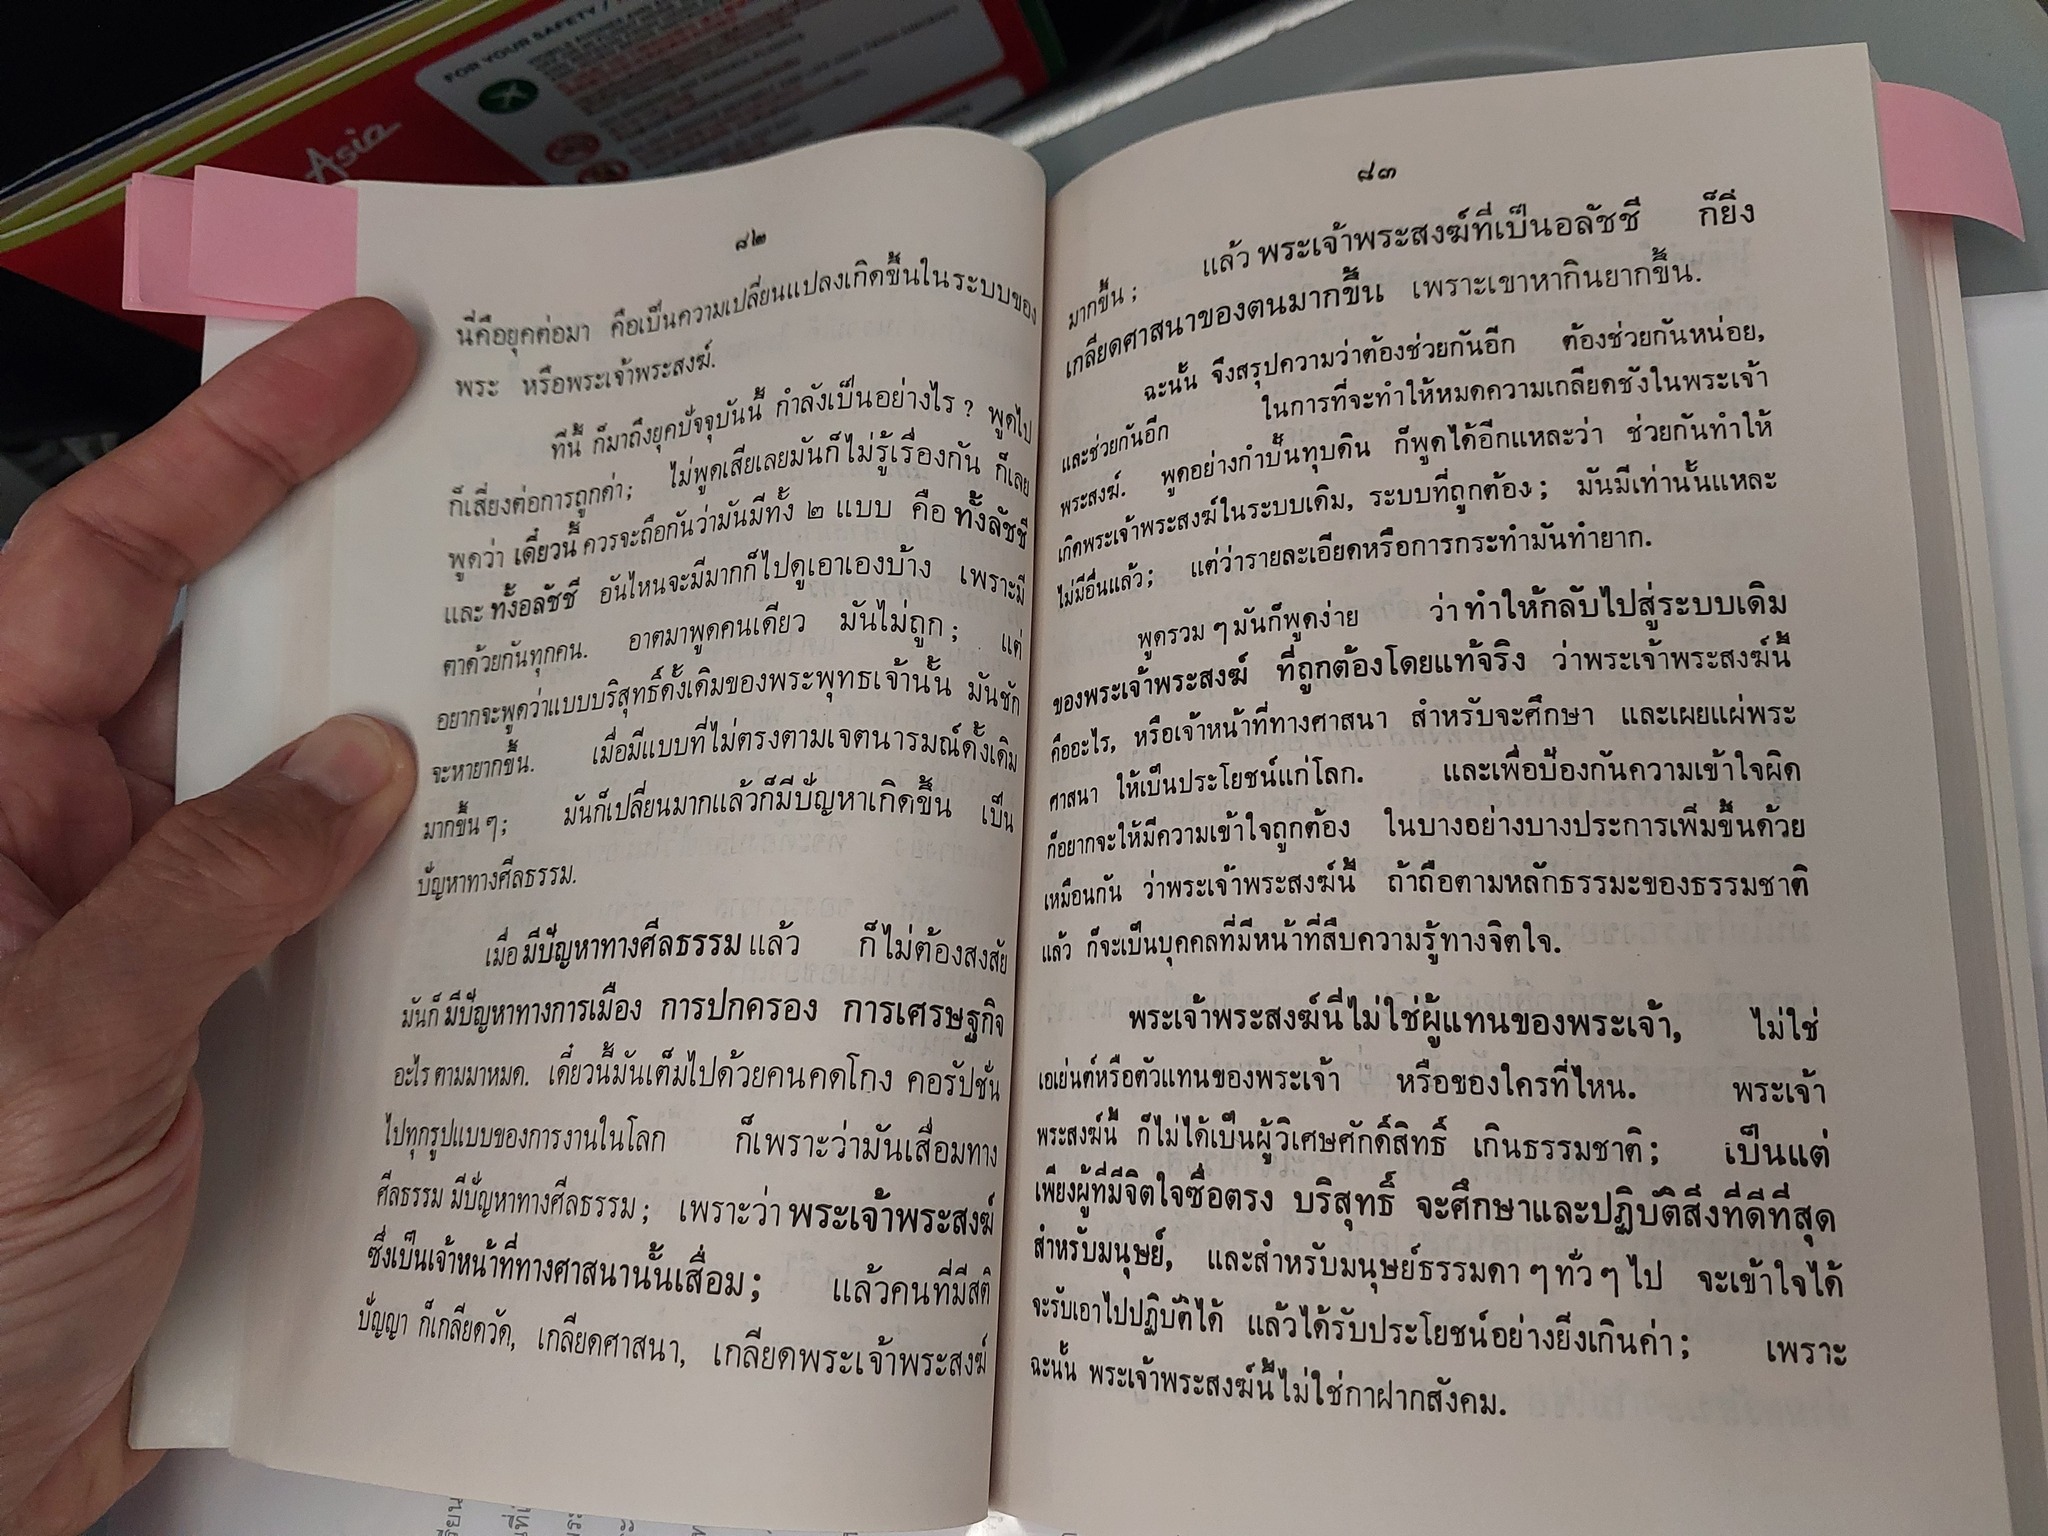 FOR YOUR SAFETY /
Asia
๘๒
นี่คือยุคต่อมา คือเป็นความเปลี่ยนแปลงเกิดขึ้นในระบบของ
พระ หรือพระเจ้าพระสงฆ์.
ทีนี้ ก็มาถึงยุคปัจจุบันนี้ กำลังเป็นอย่างไร ? พูดไป
ก็เสี่ยงต่อการถูกด่า ; ไม่พูดเสียเลยมันก็ไม่รู้เรื่องกัน ก็เลย
พูดว่า เดี๋ยวนี้ ควรจะถือกันว่ามันมีทั้ง ๒ แบบ คือ ทั้งลัชชี
และ ทั้งอลัชชี อันไหนจะมีมากก็ไปดูเอาเองบ้าง เพราะมี
ตาด้วยกันทุกคน. อาตมาพูดคนเดียว มันไม่ถูก ; แต่
อยากจะพูดว่าแบบบริสุทธิ์ดั้งเดิมของพระพุทธเจ้านั้น มันชัก
จะหายากขึ้น. เมื่อมีแบบที่ไม่ตรงตามเจตนารมณ์ดั้งเดิม
มากขึ้น ๆ ; มันก็เปลี่ยนมากแล้วก็มีปัญหาเกิดขึ้น เป็น
ปัญหาทางศีลธรรม.
เมื่อ มีปัญหาทางศีลธรรม แล้ว ก็ไม่ต้องสงสัย
มันก็ มีปัญหาทางการเมือง การปกครอง การเศรษฐกิจ
อะไร ตามมาหมด. เดี๋ยวนี้มันเต็มไปด้วยคนคดโกง คอรัปชั่น
ไปทุกรูปแบบของการงานในโลก ก็เพราะว่ามันเสื่อมทาง
ศีลธรรม มีปัญหาทางศีลธรรม ; เพราะว่า พระเจ้าพระสงฆ์
ซึ่งเป็นเจ้าหน้าที่ทางศาสนานั้นเสื่อม ; แล้วคนที่มีสติ
ปัญญา ก็เกลียดวัด, เกลียดศาสนา, เกลียดพระเจ้าพระสงฆ์
๘๓
มากขึ้น ; แล้ว พระเจ้าพระสงฆ์ที่เป็นอลัชชี ก็ยิ่ง
เกลียดศาสนาของตนมากขึ้น เพราะเขาหากินยากขึ้น.
ฉะนั้น จึงสรุปความว่าต้องช่วยกันอีก ต้องช่วยกันหน่อย,
และช่วยกันอีก ในการที่จะทำให้หมดความเกลียดชังในพระเจ้า
พระสงฆ์. พูดอย่างกำปั้นทุบดิน ก็พูดได้อีกแหละว่า ช่วยกันทำให้
เกิดพระเจ้าพระสงฆ์ในระบบเดิม, ระบบที่ถูกต้อง ; มันมีเท่านั้นแหละ
ไม่มีอื่นแล้ว ; แต่ว่ารายละเอียดหรือการกระทำมันทำยาก.
พูดรวม ๆ มันก็พูดง่าย ว่า ทำให้กลับไปสู่ระบบเดิม
ของพระเจ้าพระสงฆ์ ที่ถูกต้องโดยแท้จริง ว่าพระเจ้าพระสงฆ์นี้
คืออะไร, หรือเจ้าหน้าที่ทางศาสนา สำหรับจะศึกษา และเผยแผ่พระ
ศาสนา ให้เป็นประโยชน์แก่โลก. และเพื่อป้องกันความเข้าใจผิด
ก็อยากจะให้มีความเข้าใจถูกต้อง ในบางอย่างบางประการเพิ่มขึ้นด้วย
เหมือนกัน ว่าพระเจ้าพระสงฆ์นี้ ถ้าถือตามหลักธรรมะของธรรมชาติ
แล้ว ก็จะเป็นบุคคลที่มีหน้าที่สืบความรู้ทางจิตใจ.
พระเจ้าพระสงฆ์นี้ไม่ใช่ผู้แทนของพระเจ้า, ไม่ใช่
เอเย่นต์หรือตัวแทนของพระเจ้า หรือของใครที่ไหน. พระเจ้า
พระสงฆ์นี้ ก็ไม่ได้เป็นผู้วิเศษศักดิ์สิทธิ์ เกินธรรมชาติ ; เป็นแต่
เพียงผู้ที่มีจิตใจซื่อตรง บริสุทธิ์ จะศึกษาและปฏิบัติสิ่งที่ดีที่สุด
สำหรับมนุษย์, และสำหรับมนุษย์ธรรมดา ๆ ทั่ว ๆ ไป จะเข้าใจได้
จะรับเอาไปปฏิบัติได้ แล้วได้รับประโยชน์อย่างยิ่งเกินค่า ; เพราะ
ฉะนั้น พระเจ้าพระสงฆ์นี้ไม่ใช่กาฝากสังคม.